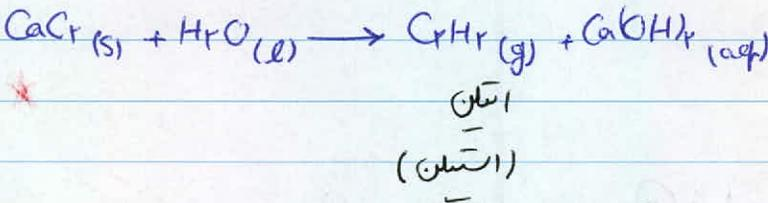 CaC۲ (s) + H۲O (l) ⟶ C۲H۲ (g) + Ca(OH)۲ (aq)
اتین
(استیلن)